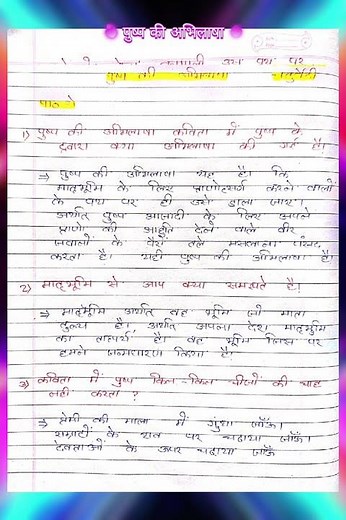 पुष्प की अभिलाषा
पुष्प की अभिलाषा - चतुर्वेदी
पाठ - 1
1) पुष्प की अभिलाषा कविता में पुष्प के
द्वारा क्या अभिलाषा की गई है।
⇒ पुष्प की अभिलाषा यह है। कि
मातृभूमि के लिए प्राणोत्सर्ग करने वालों
के पथ पर ही उसे डाला जाए।
अर्थात पुष्प आजादी के लिए अपने
प्राणों की आहूति देने वाले वीर
जवानों के पैरों तले मसलाना पसंद
करता है। यही पुष्प की अभिलाषा है।
2) मातृभूमि से आप क्या समझते है।
⇒ मातृभूमि अर्थात वह भूमि जो माता
तुल्य है। अर्थात अपना देश मातृभूमि
का तात्पर्य है। वह भूमि जिस पर
हमने जन्मधारण किया है।
3) कविता में पुष्प किन-किन चीजों की चाह
नहीं करता ?
⇒ प्रेमी की माला में गुंथा जाँऊ।
सम्राटों के शव पर चढाया जाँऊ।
देवताओं के ऊपर चढाया जाँऊ